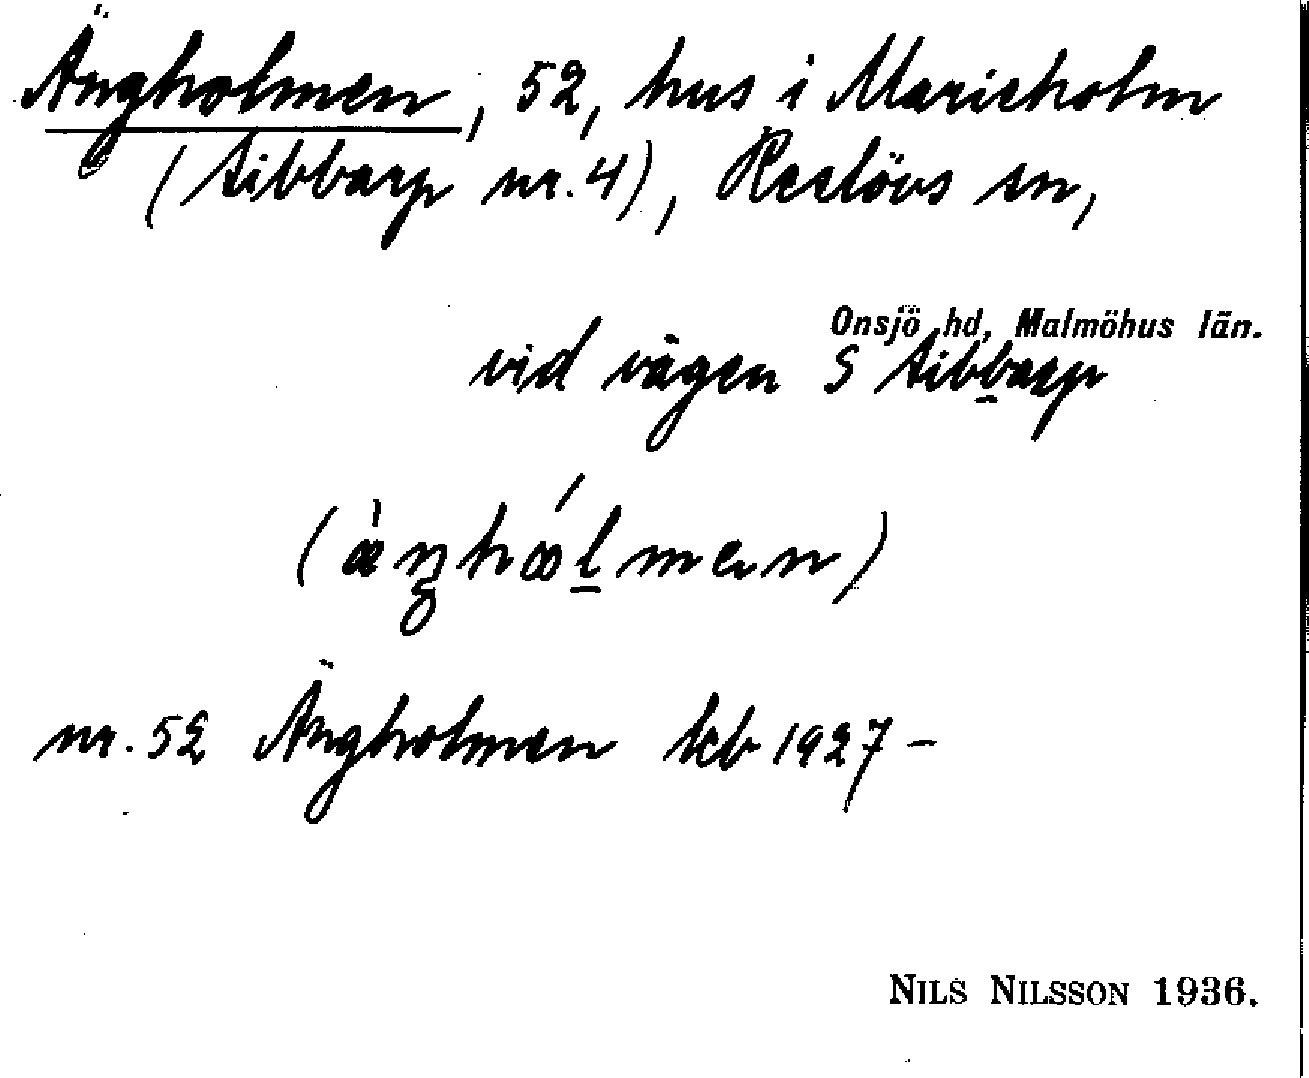 Ängholmen, 52, hus i Marieholm
(Sibbarp nr. 4), Reslövs sn,
Onsjö hd, Malmöhus län.
vid vägen S Sibbarp
nr. 52 Ängholmen kb 1927 –
NILS NILSSON 1936.